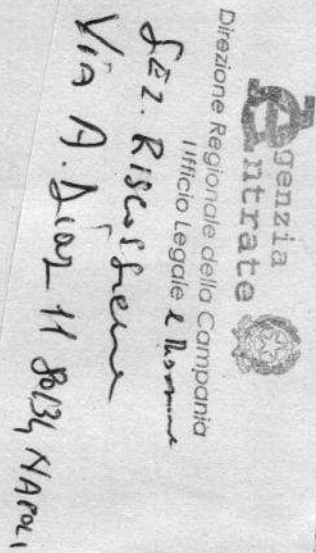 Agenzia
Entrate
Direzione Regionale della Campania
Ufficio Legale e
SEZ. Riscossione
Via A. Diaz 11 80134 NAPOLI